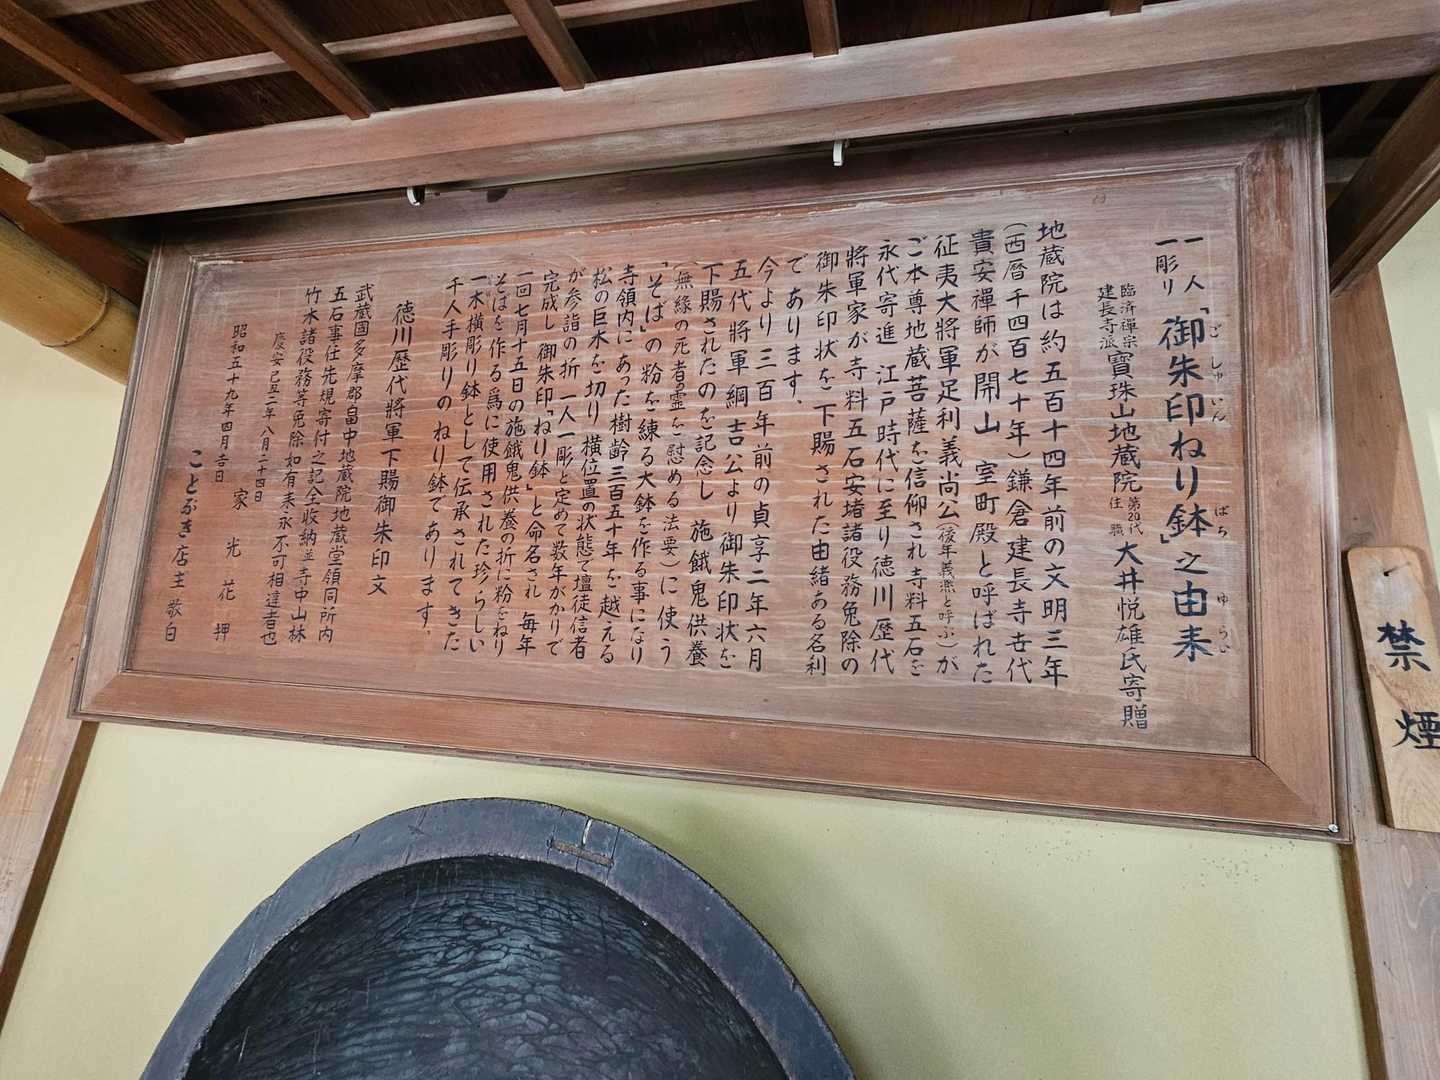 一人
一彫り
「御朱印ねり鉢」之由来
ごしゅいん
ばち
ゆらい
臨済禪宗
建長寺派
寶珠山地蔵院
第20代
住職
大井悦雄氏寄贈
地蔵院は約五百十四年前の文明三年
(西暦千四百七十年)鎌倉建長寺世代
貴安禪師が開山 室町殿と呼ばれた
征夷大將軍足利義尚公(後年義凞と呼ぶ)が
ご本尊地蔵菩薩を信仰され寺料五石を
永代寄進 江戸時代に至り徳川歴代
將軍家が寺料五石安堵諸役務免除の
御朱印状を下賜された由緒ある名刹
であります.
今より三百年前の貞享二年六月
五代將軍綱吉公より御朱印状を
下賜されたのを記念し 施餓鬼供養
(無縁の死者霊を慰める法要)に使う
「そば」の粉を練る大鉢を作る事になり
寺領内にあった樹齢三百五十年を越える
松の巨木を切り 横位置の状態で壇徒信者
が参詣の折 一人一彫と定めて数年がかりで
完成し 御朱印「ねり鉢」と命名され 毎年
一回七月十五日の施餓鬼供養の折に粉をねり
そばを作る爲に使用された珍らしい
一木横彫り鉢として伝承されてきた
千人手彫りのねり鉢であります.
徳川歴代將軍下賜御朱印文
武蔵国多摩郡畠中地蔵院地蔵堂領同所内
五石事任先規寄付之記全收納並寺中山林
竹木諸役務等免除如有来永不可相違者也
慶安己丑二年八月二十四日
家光花押
昭和五十九年四月吉日
ことぶき店主敬白
禁煙